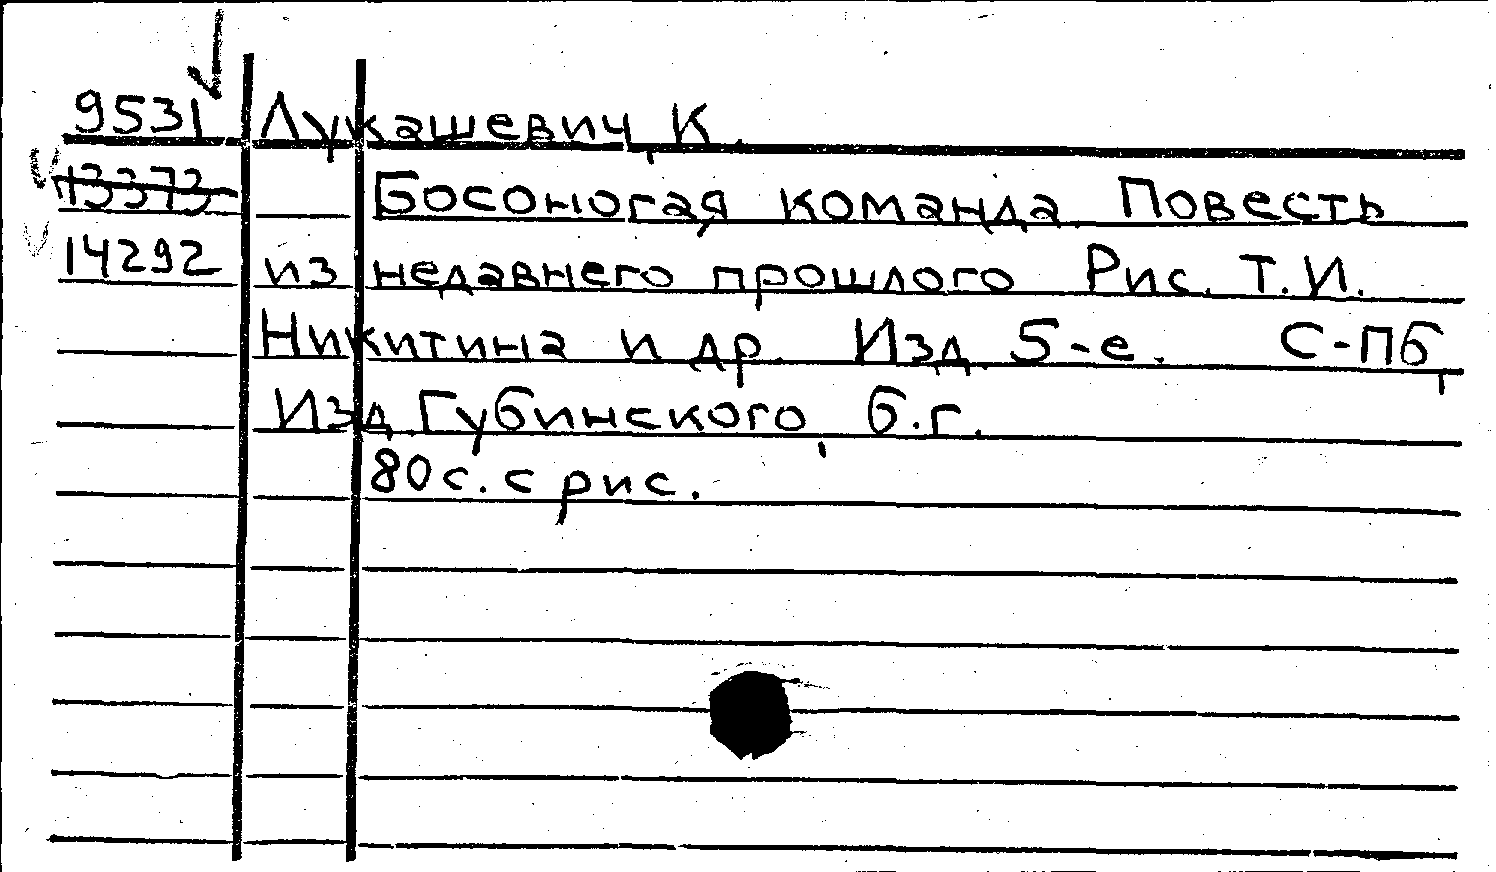 9531 Лукашевич, К.
13373 Босоногая команда. Повесть
14292 из недавнего прошлого. Рис. Т.И.
Никитина и др. Изд. 5-е. С-Пб,
Изд. Губинского, б.г.
80с. с рис.